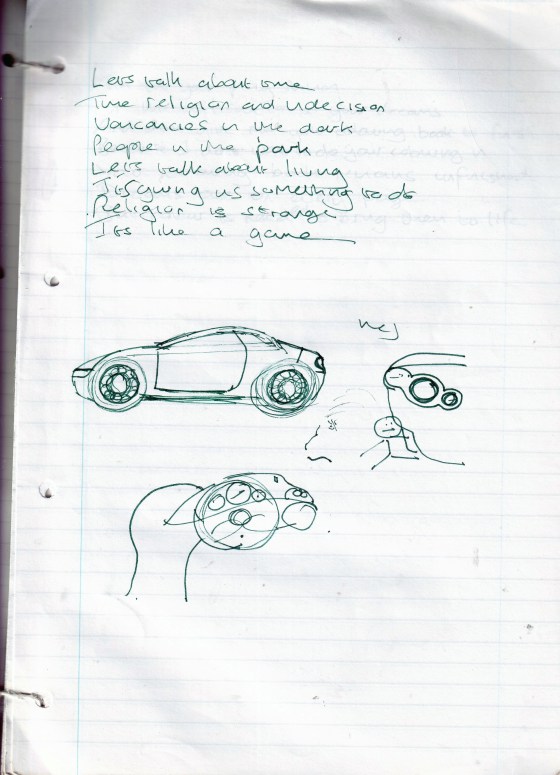 Lets talk about time
Time religion and indecision
Vancancies in the dark
People in the park
Lets talk about living
Its giving us something to do
Religion is strange
Its like a game